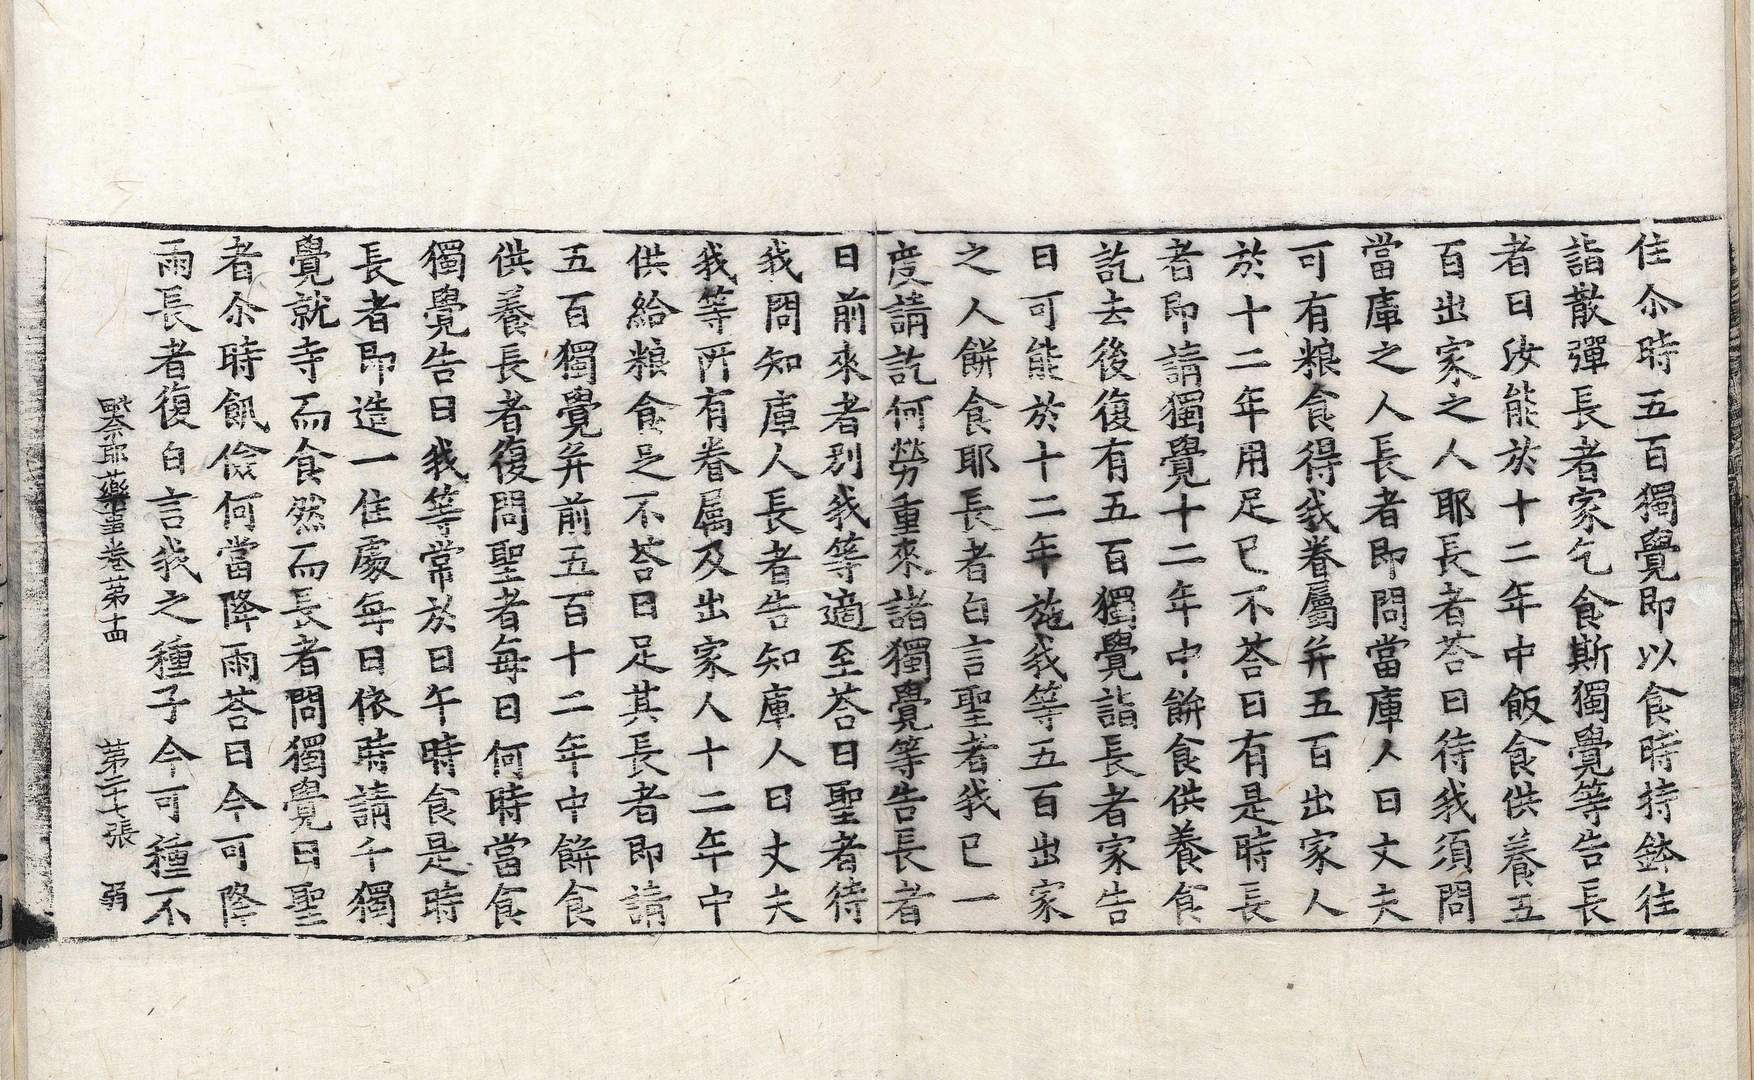 住尒時五百獨覺即以食時持鉢往
詣散彈長者家乞食斯獨覺等告長
者曰汝能於十二年中飯食供養五
百出家之人耶長者荅曰待我須問
當庫之人長者即問當庫人曰丈夫
可有粮食得我眷屬并五百出家人
於十二年用足已不荅曰有是時長
者即請獨覺十二年中餅食供養食
訖去後復有五百獨覺詣長者家告
曰可能於十二年施我等五百出家
之人餅食耶長者白言聖者我已一
度請訖何勞重來諸獨覺等告長者
曰前來者別我等適至荅曰聖者待
我問知庫人長者告知庫人曰丈夫
我等所有眷屬及出家人十二年中
供給粮食足不荅曰足其長者即請
五百獨覺并前五百十二年中餅食
供養長者復問聖者每日何時當食
獨覺告曰我等常於日午時食是時
長者即造一住處每日依時請千獨
覺就寺而食然而長者問獨覺曰聖
者尒時飢儉何當降雨荅曰今可降
雨長者復白言我之種子今可種不
毉奈耶藥事卷第十四 第二十七張 弱